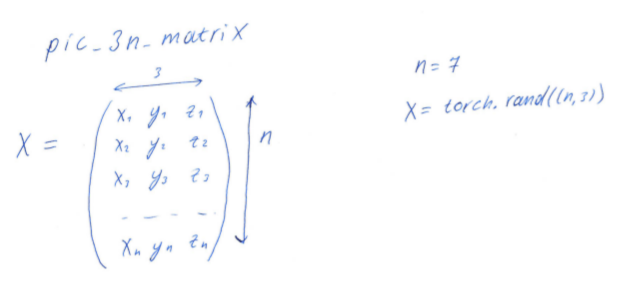 pic_3n_matrix
3
X =
x₁ y₁ z₁
x₂ y₂ z₂
x₃ y₃ z₃
- - - -
xₙ yₙ zₙ
n
n = 7
X = torch.rand((n,3))